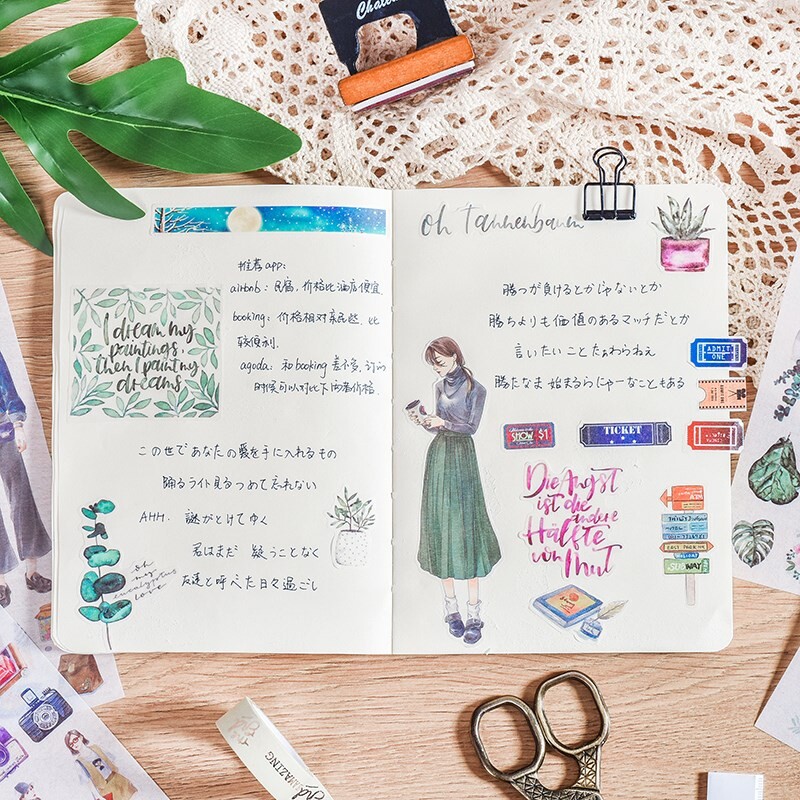 推荐app:
airbnb: 民宿,价格比酒店便宜
booking: 价格相对亲民些,比
较便利.
agoda: 和booking差不多,订的
时候可以对比下两者价格.
I dream my
paintings,
then I paint my
dreams
この世であなたの愛を手に入れるもの
踊るライト見るつめて忘れない
AHH. 謎がとけてゆく
君はまだ 疑うことなく
友達と呼べた日々過ごし
oh
my
eucalyptus
love
oh Tannenbaum
勝つが負けるとかじゃないとか
勝ちよりも価値のあるマッチだとか
言いたいことたぁわらねえ
勝たなま始まるらにゃーなこともある
ADMIT
ONE
SHOW $1
TICKET
Die Angst
ist die
andere
Hälfte
von Mut
EAST PARK
SUBWAY
AMAZING